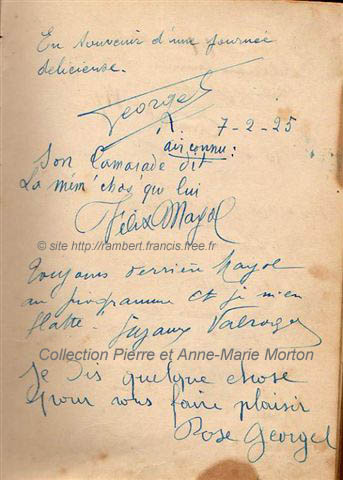 En souvenir d'une journée
délicieuse.
Georgel
7-2-25
air connu:
Son Camarade dit
La mêm' chos' que lui
Félix Mayol
© site http://rambert.francis.free.fr
Toujours derrière Mayol
au programme et je m'en
flatte. Suzanne Valroger
Collection Pierre et Anne-Marie Morton
Je dis quelque chose
pour vous faire plaisir
Rose Georgel